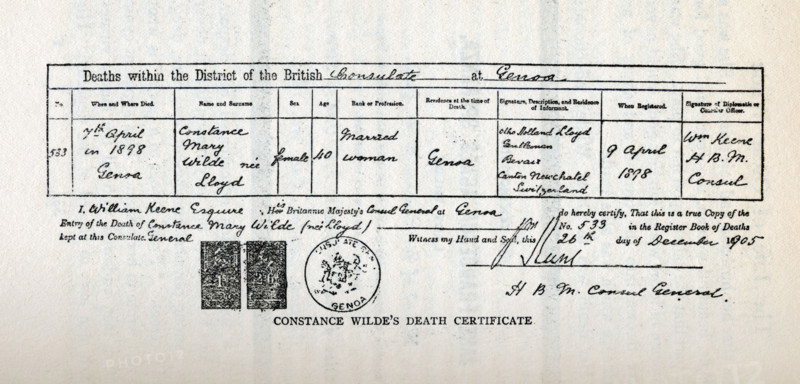 Deaths within the District of the British Consulate at Genoa
No. When and Where Died. Name and Surname Sex Age Rank or Profession. Residence at the time of Death. Signature, Description, and Residence of Informant. When Registered. Signature of Diplomatic or Consular Officer.
533 7th April in 1898 Genoa Constance Mary Wilde née Lloyd female 40 Married woman Genoa Otho Holland Lloyd Gentleman Bevaix Canton Newchatel Switzerland 9 April 1898 Wm Keene H B M Consul
I, William Keene Esquire, His Britannic Majesty's Consul General at Genoa do hereby certify, That this is a true Copy of the
Entry of the Death of Constance Mary Wilde (née Lloyd) No. 533 in the Register Book of Deaths
kept at this Consulate General Witness my Hand and Seal, this 26th day of December 1905
H B M Consul General.
GENOA
CONSTANCE WILDE'S DEATH CERTIFICATE
PHOTO12